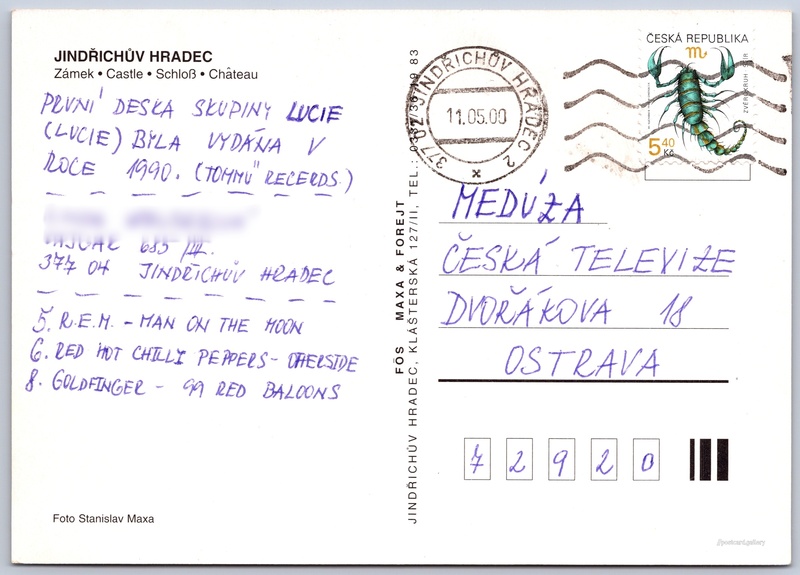 JINDŘICHŮV HRADEC
Zámek • Castle • Schloß • Château
PRVNÍ DESKA SKUPINY LUCIE
(LUCIE) BYLA VYDÁNA V
ROCE 1990. (TOMMÜ RECERDS.)
VAJGAR 685/III.
377 04 JINDŘICHŮV HRADEC
5. R.E.M. - MAN ON THE MOON
6. RED HOT CHILLI PEPPERS - OTHERSIDE
8. GOLDFINGER - 99 RED BALOONS
Foto Stanislav Maxa
FOS MAXA & FOREJT
JINDŘICHŮV HRADEC, KLÁŠTERSKÁ 127/II, TEL.:
377 02 JINDŘICHŮV HRADEC 2
11.05.00
ČESKÁ REPUBLIKA
5.40
Kč
MEDÚZA
ČESKÁ TELEVIZE
DVOŘÁKOVA 18
OSTRAVA
72920
//postcard.gallery